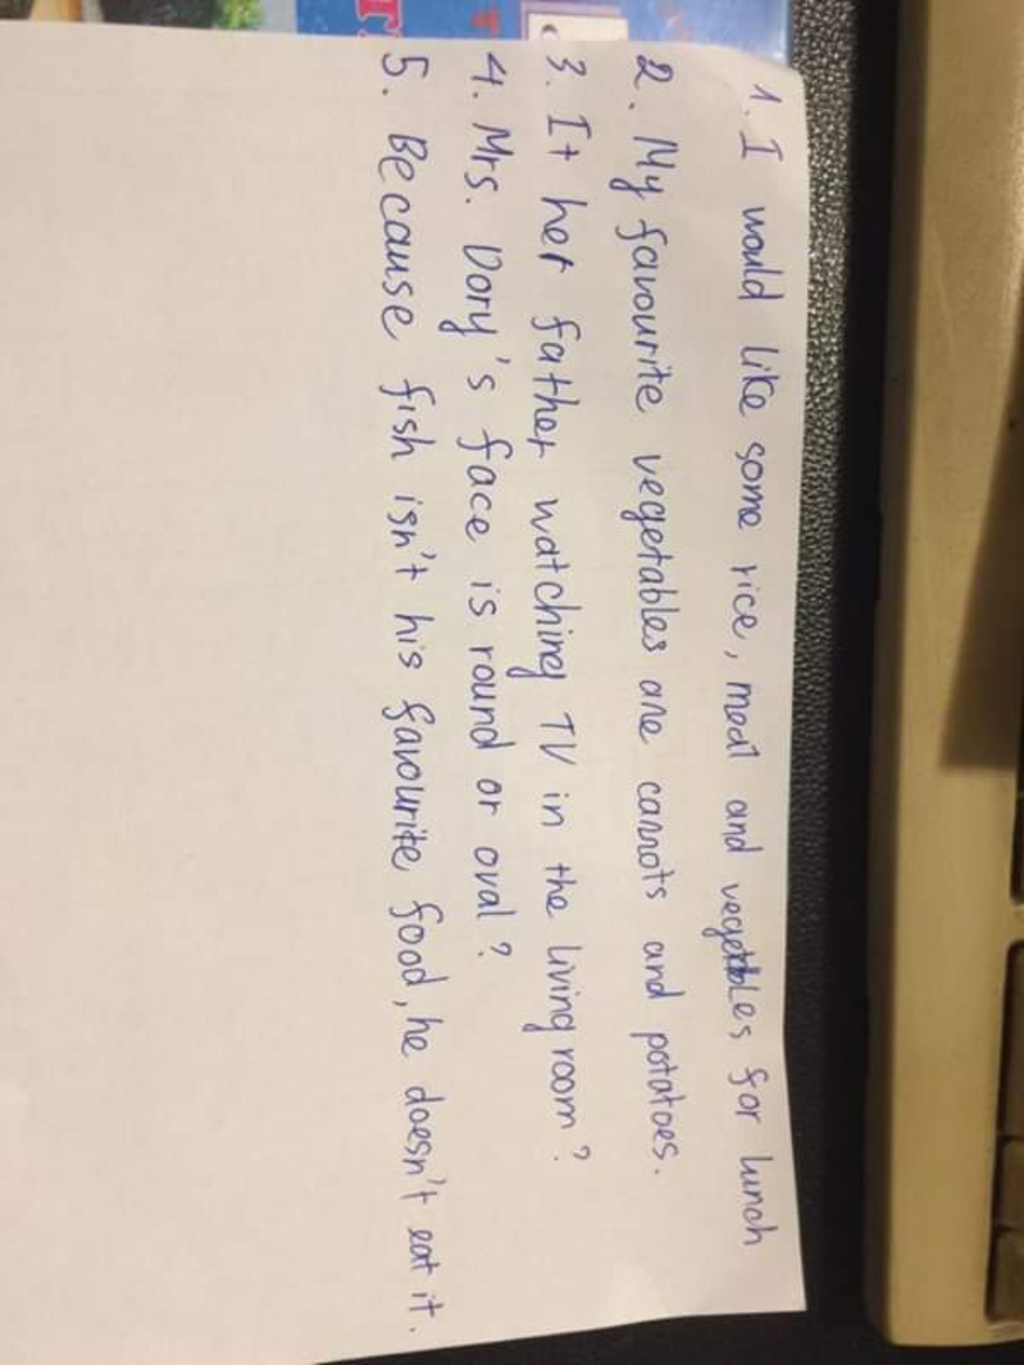 1. I would like some rice, meat and vegetables for lunch
2. My favourite vegetables are carrots and potatoes.
3. It her father watching TV in the living room?
4. Mrs. Dory's face is round or oval?
5. Because fish isn't his favourite food, he doesn't eat it.